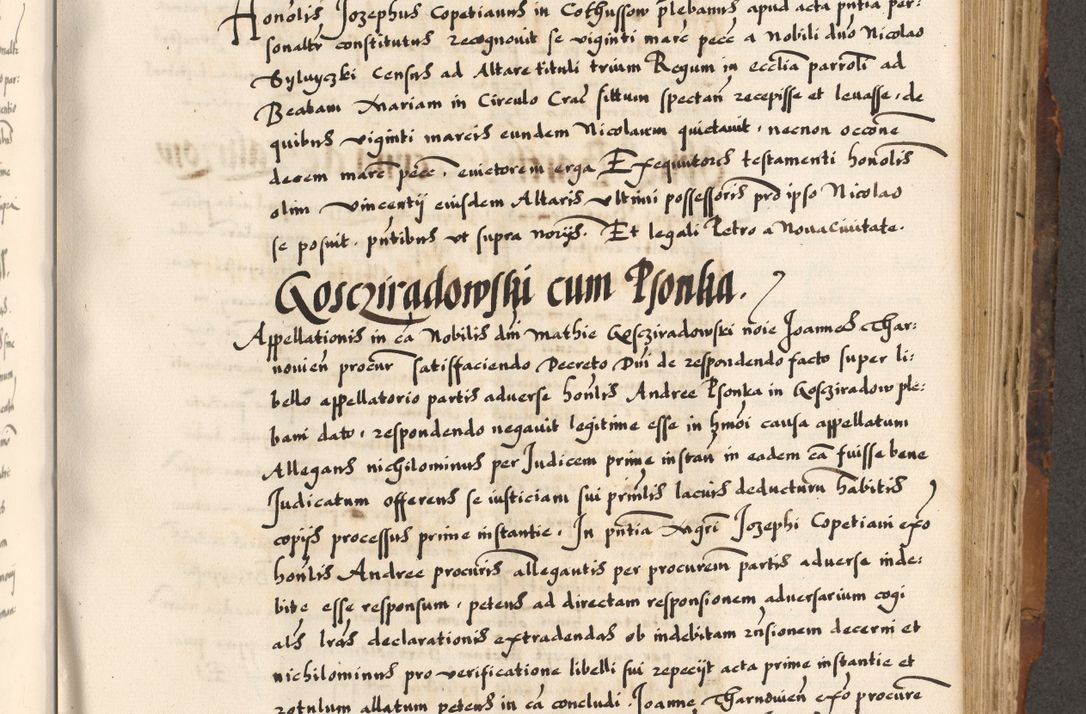 Honolis Jozephus Copatianus in Cothussow plebanus apud acta pntia per:
sonaltr constitutus recognovit se viginti marc pecc a Nobili duo Nicolao
Sylvyczki Census ad Altare tituli trium Regum in ecclia parroli ad
Beatam Mariam in Circulo Crac situm spectan recepisse et levasse, de
quibus viginti marcis eundem Nicolaum quietavit, necnon occone
decem marc pecc, evictorem erga Exequutores testamenti honolis
olim Vincentij eiusdem Altaris ultimi possessoris pro ipso Nicolao
se posuit, pntibus ut supra norijs. Et legali Petro a Nova Civitate.
Goscziradowski cum Psonka.
Appellationis in ca Nobilis dni Mathie Goscziradowski noie Joannes Thar:
novien procur satisfaciendo Decreto Dni de respondendo facto super li:
bello appellatorio partis adverse honlis Andree Psonka in Gosczradow ple:
bani dato, respondendo negavit legitime esse in hmoi causa appellatum
Allegans nichilominus per Judicem prime instan in eadem ca fuisse bene
Judicatum offerens se iusticiam sui prnlis lacius deducturu habitis
copijs processus prime instantie. In pntia Magri Jozephi Copetiani exo
honlis Andree procuris allegantis per procurem partis adverse inde:
bite esse responsum, petens ad directam responsionem adversarium cogi
als lras declarationis extradendas ob indebitam rnsionem decerni et
nichilominus pro verificatione libelli sui repecijt acta prime instantie et
rotulum allatum petens in ca concludi. Joanne Tharnowien exo procure